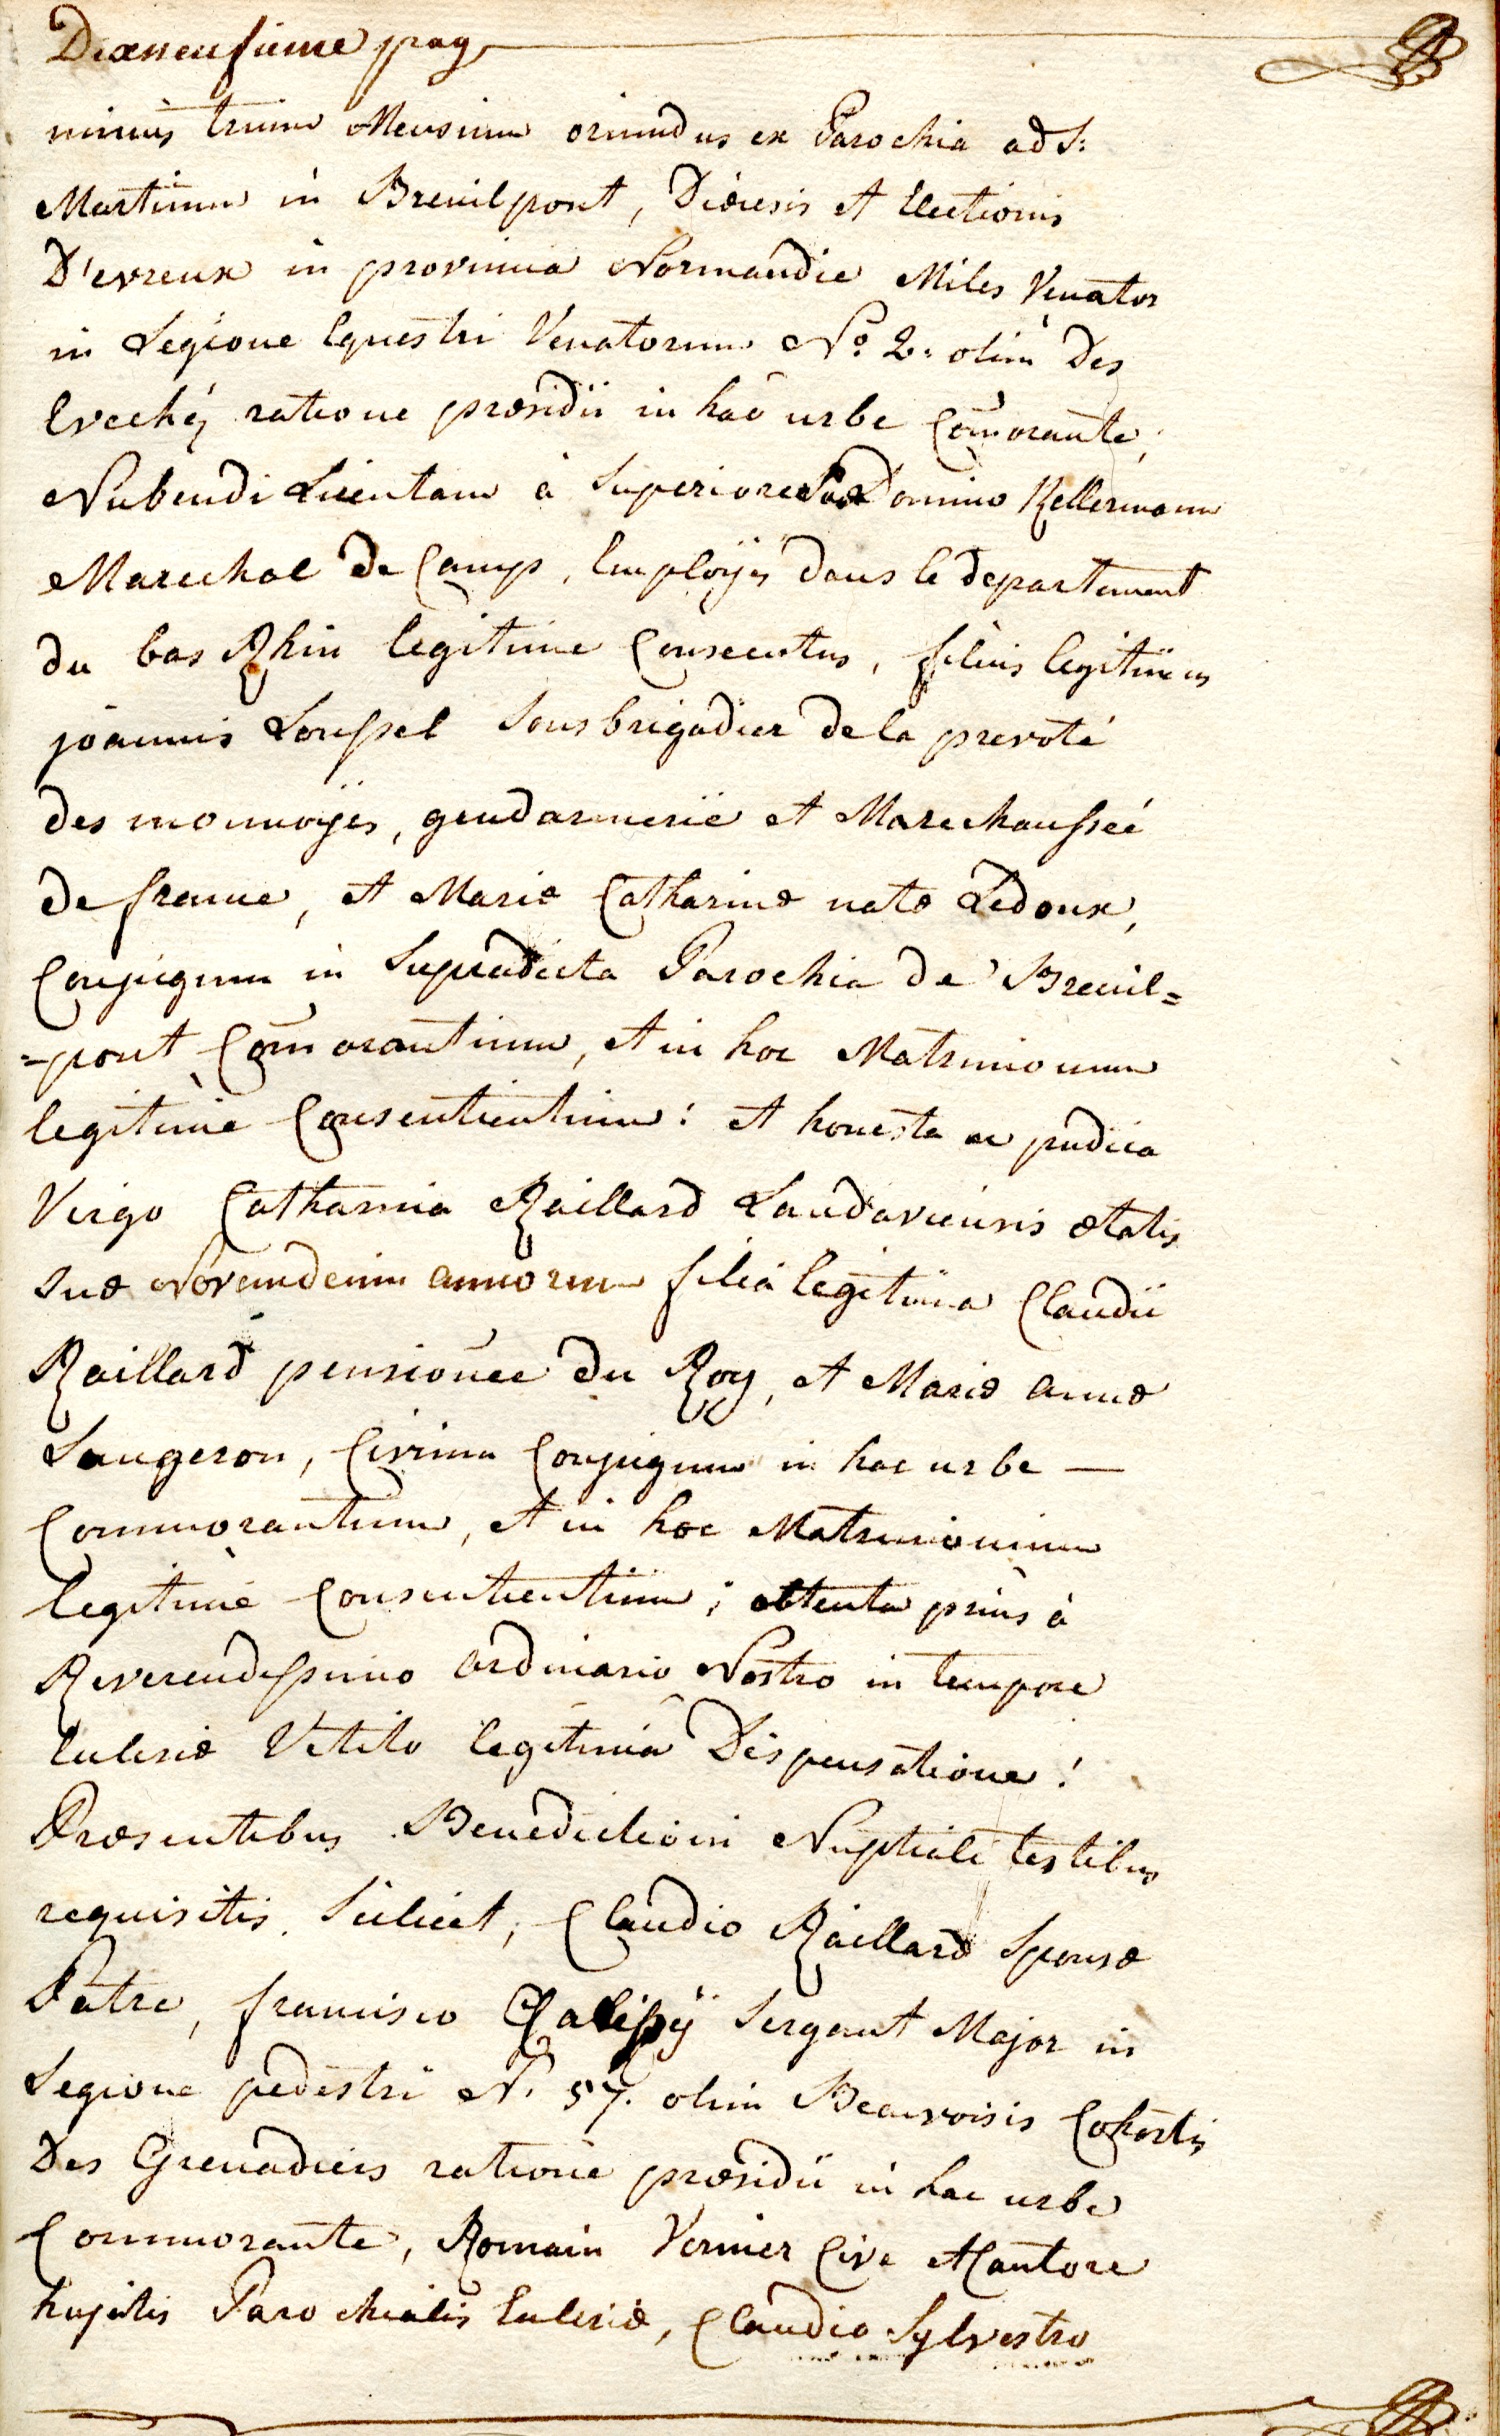 Dixneufieme pag
minus trium Mensium oriundus ex Parochia ad S:
Martinum in Breuilpont, Diœcesis et Electionis
D'evreux in provincia Normandie Miles Venator
in Legione Equestri Venatorum No. 2. olim Des
Evechéz ratione præsidii in hac urbe Com̃orante,
Nubendi Licentiam à Superiore Domino Kellermann
Marechal de Camp, Employés dans le departement
du bas Rhin legitime Consecutus, filius legitimus
joannis Loussel Sousbrigadier de la prevoté
des monnoÿes, gendarmerie et Marechaussée
de france, et Mariæ Catharinæ natæ Ledoux,
Conjugum in Supradicta Parochia de Breuil=
=pont Com̃orantium, et in hoc Matrimonium
legitimè Consentientium: et honesta ac pudica
Virgo Catharina Raillard Landaviensis ætatis
suæ Novemdecim annorum filia legitima Claudii
Raillard pensionée du Roy, et Mariæ annæ
Laugeron, Civium Conjugum in hac urbe —
Commorantium, et in hoc Matrimonium
legitimè Consentientium; obtenta prius à
Reverendissimo ordinario Nostro in tempore
Eclesiæ Vetito legitimâ Dispensatione!
Præsentibus Benedictioni Nuptiali testibus
requisitis Scilicet, Claudio Raillard Sponsæ
Patre, francisco Sergant Major in
Legione pedestri N. 57. olim Beauvoisis Cohortis
Des Grenadiers ratione præsidii in hac urbe
Commorante, Romain Vernier Cive et Cantore
hujatis Parochialis Eclesiæ, Claudio Sylvestro